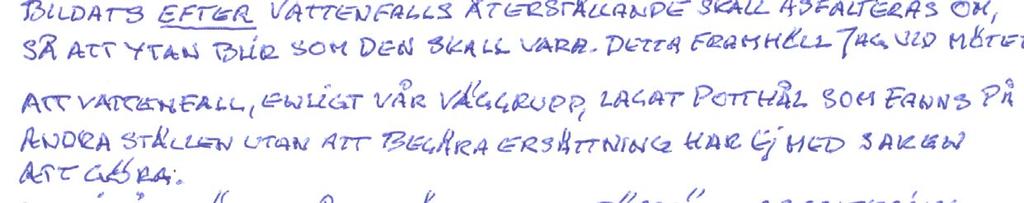 BILDATS EFTER VATTENFALLS ÅTERSTÄLLANDE SKALL ASFALTERAS OM,
SÅ ATT YTAN BLIR SOM DEN SKALL VARA. DETTA FRAMHÖLL JAG VID MÖTET
ATT VATTENFALL, ENLIGT VÅR VÄGGRUPP, LAGAT POTTHÅL SOM FANNS PÅ
ANDRA STÄLLEN UTAN ATT BEGÄRA ERSÄTTNING HAR EJ MED SAKEN
ATT GÖRA.